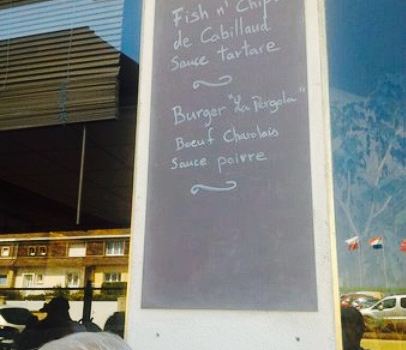 Fish n' Chips
de Cabillaud
Sauce tartare
Burger "La Pergola"
Boeuf Charolais
Sauce poivre